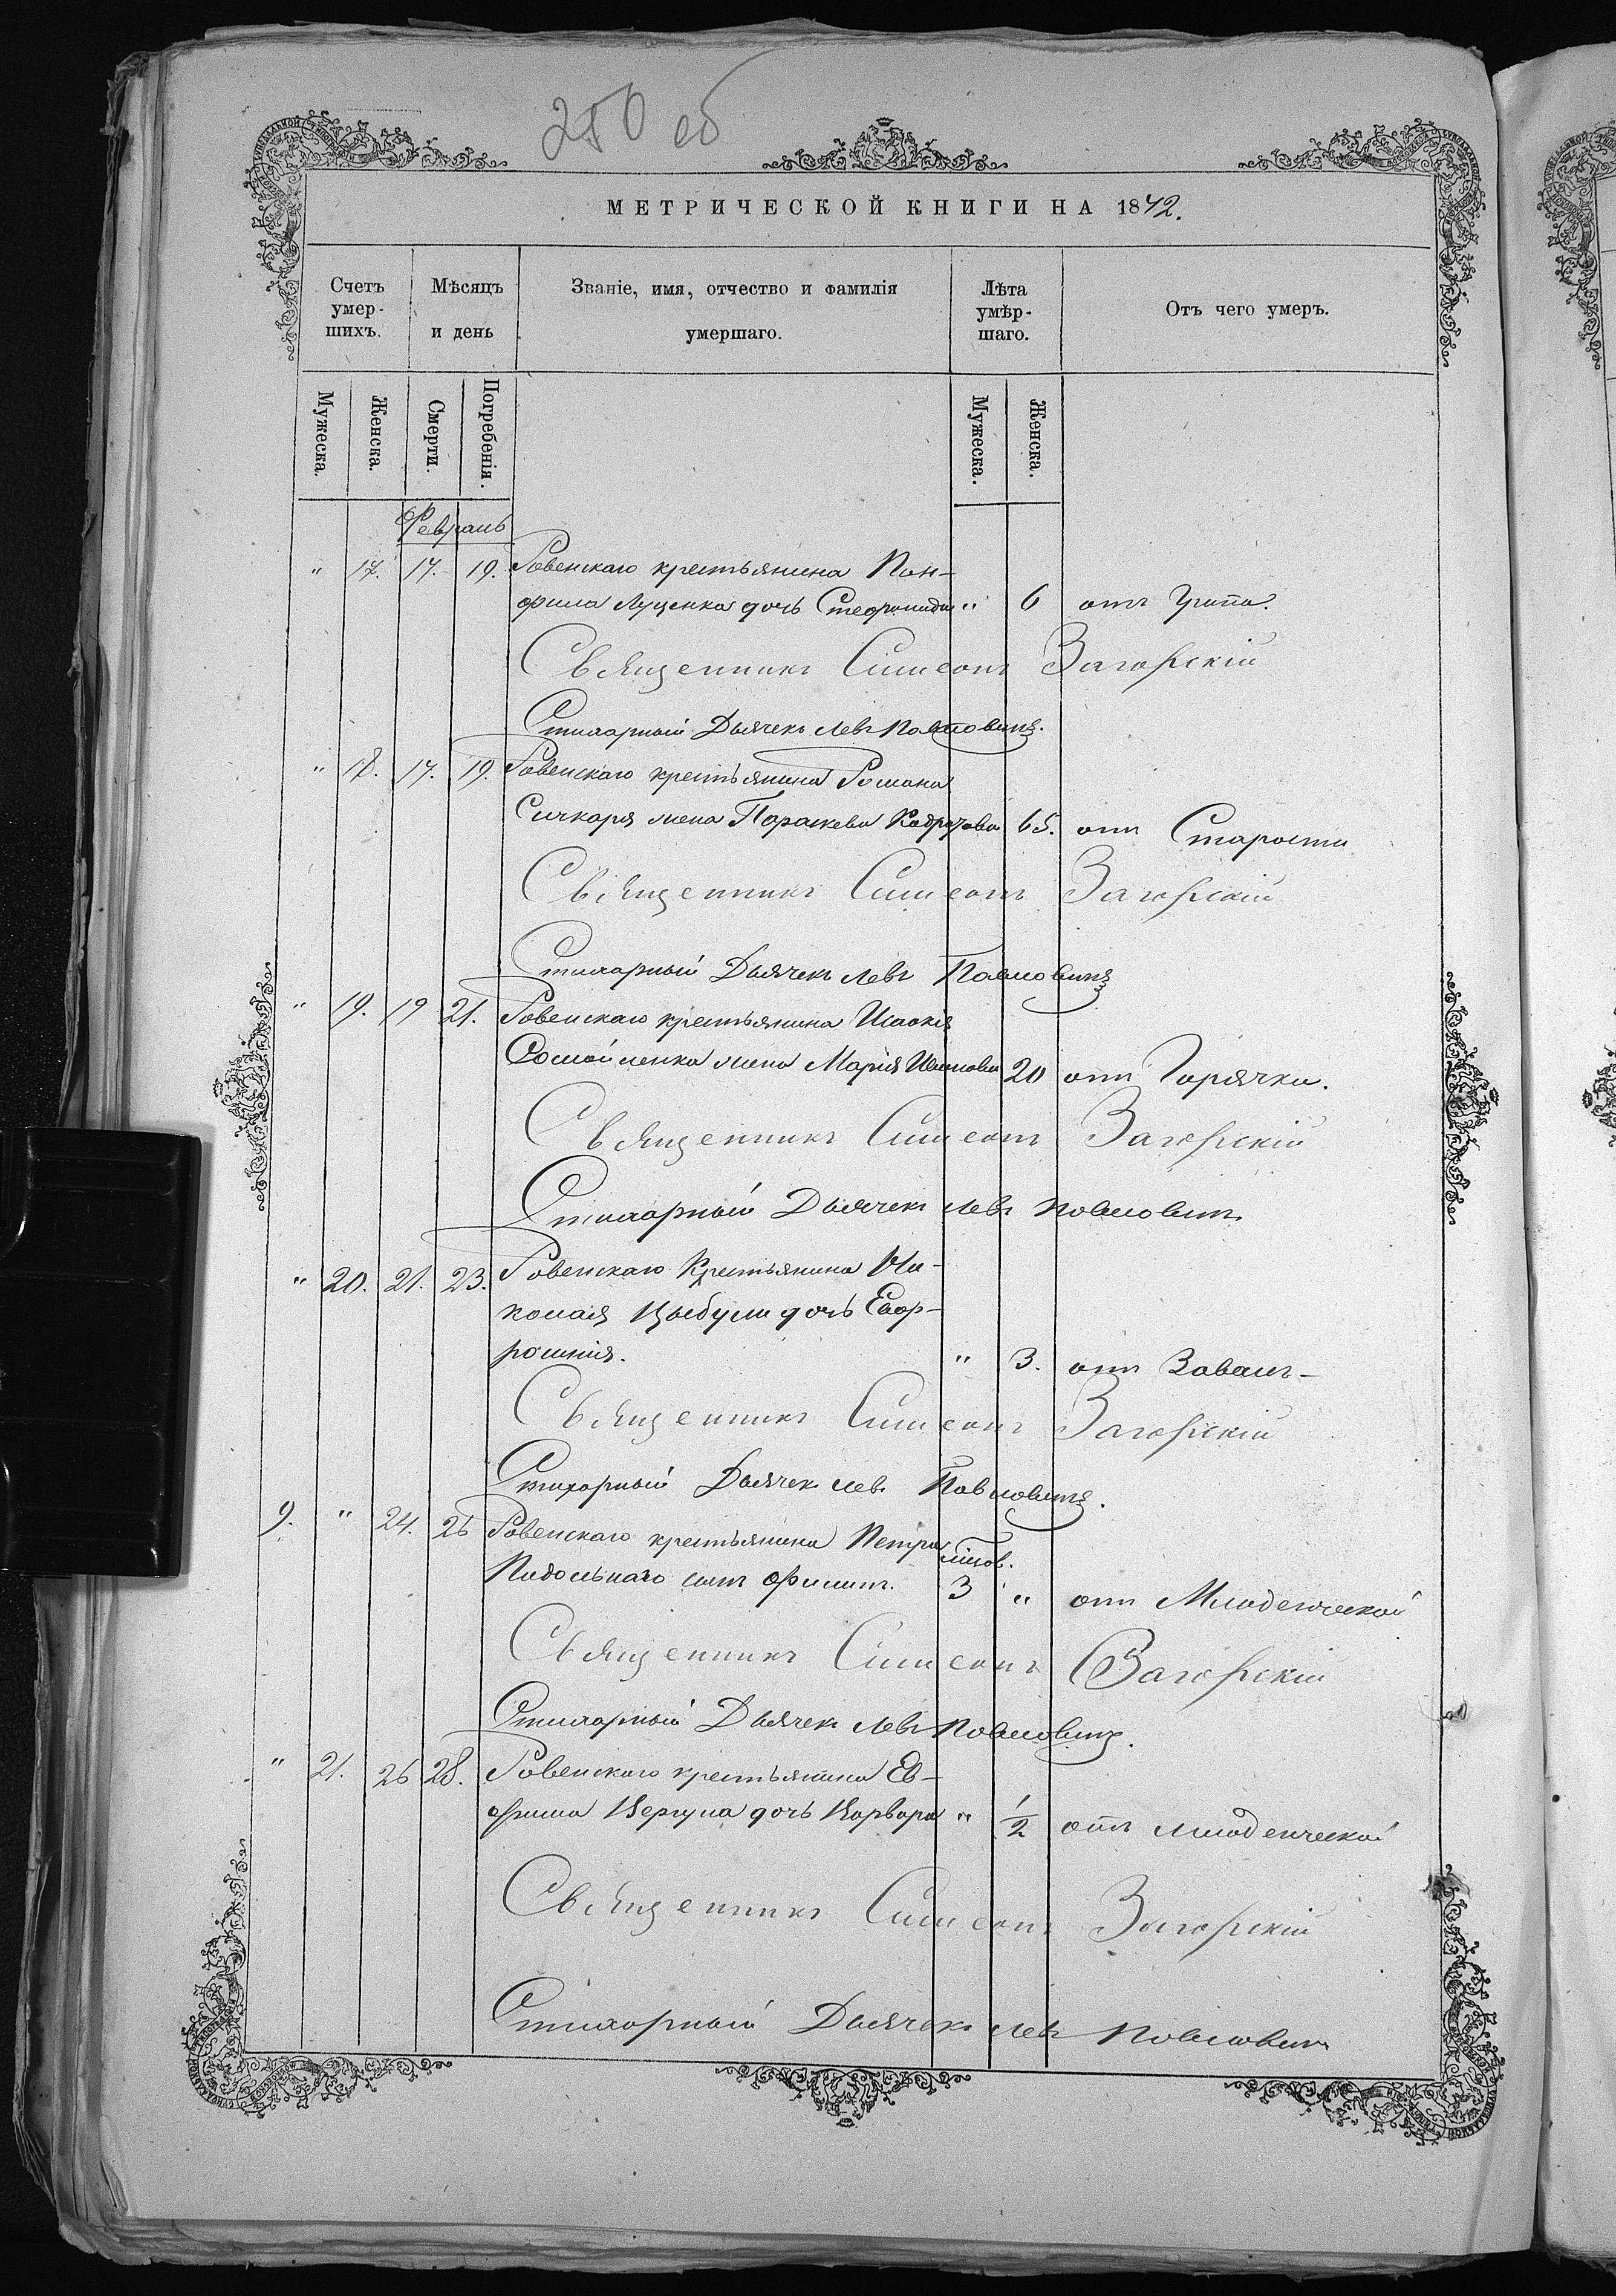 250 об
МЕТРИЧЕСКОЙ КНИГИ НА 1872.
Счетъ умер-шихъ.
Мѣсяцъ и день
Званіе, имя, отчество и фамилія умершаго.
Лѣта умѣр-шаго.
Отъ чего умеръ.
Мужеска. Женска. Смерти. Погребенія. Мужеска. Женска.
Февраль
" 17. 17. 19. Ровенскаго крестьянина Пан-
фила Луценка дочь Стефанида " 6 отъ Грипа.
Священникъ Симеонъ Загорскій
Стихарный Дьячекъ Левъ Павловичъ.
" 18. 17. 19. Ровенскаго крестьянина Романа
Сичкаря жена Параскева 65. отъ Старости
Священникъ Симеонъ Загорскій
Стихарный Дьячекъ Левъ Павловичъ
" 19. 19 21. Ровенскаго крестьянина Исакія
жена Марія Иванова 20 отъ Горячки.
Священникъ Симеонъ Загорскій
Стихарный Дьячекъ Левъ Павловичъ
" 20. 21. 23. Ровенскаго Крестьянина Ни-
колая Цыбули дочь Евф-
росинія. " 3. отъ Завалъ-
Священникъ Симеонъ Загорскій
Стихарный Дьячекъ Левъ Павловичъ.
9. " 24. 26 Ровенскаго крестьянина Петра
Пидольнаго сынъ Филипъ. 3 " отъ Младенческой
Священникъ Симеонъ Загорскій
Стихарный Дьячекъ Левъ Павловичъ.
" 21. 26 28. Ровенскаго крестьянина Ев-
фима Вергуна дочь Варвара " 1/2 отъ младенческой
Священникъ Симеонъ Загорскій
Стихарный Дьячекъ Левъ Павловичъ